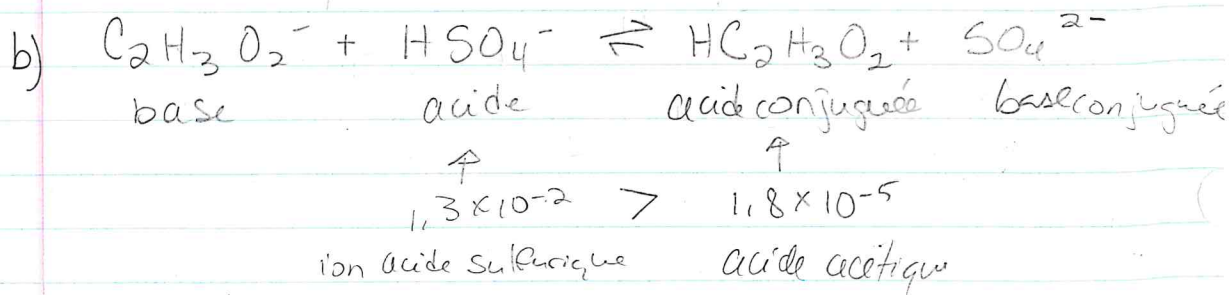 b) C₂H₃O₂⁻ + HSO₄⁻ ⇌ HC₂H₃O₂ + SO₄²⁻
base acide acide conjuguée base conjuguée
↑ ↑
1,3 × 10⁻² > 1,8 × 10⁻⁵
ion acide sulfurique acide acétique